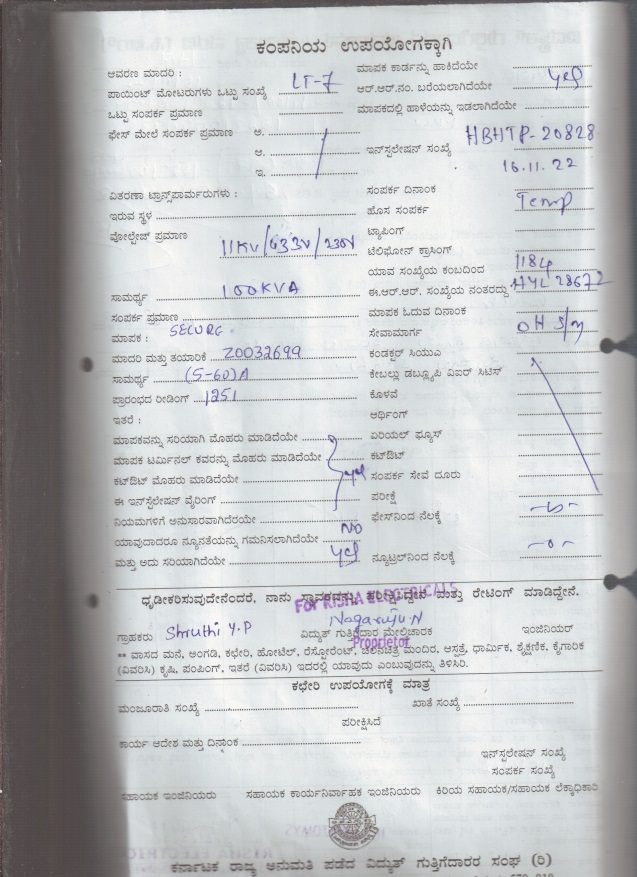 ಕಂಪನಿಯ ಉಪಯೋಗಕ್ಕಾಗಿ
ಆವರಣ ಮಾದರಿ :
ಪಾಯಿಂಟ್ ಮೋಟರುಗಳು ಒಟ್ಟು ಸಂಖ್ಯೆ LT-7
ಒಟ್ಟು ಸಂಪರ್ಕ ಪ್ರಮಾಣ
ಫೇಸ್ ಮೇಲೆ ಸಂಪರ್ಕ ಪ್ರಮಾಣ ಅ.
ಆ.
ಇ.
ವಿತರಣಾ ಟ್ರಾನ್ಸ್‌ಪಾರ್ಮರುಗಳು :
ಇರುವ ಸ್ಥಳ
ವೋಲ್ಟೇಜ್ ಪ್ರಮಾಣ 11KV/433V/230V
ಸಾಮರ್ಥ್ಯ 100KVA
ಸಂಪರ್ಕ ಪ್ರಮಾಣ
ಮಾಪಕ : SECURE
ಮಾದರಿ ಮತ್ತು ತಯಾರಿಕೆ 20032699
ಸಾಮರ್ಥ್ಯ (5-60)A
ಪ್ರಾರಂಭದ ರೀಡಿಂಗ್ 1251
ಇತರೆ :
ಮಾಪಕವನ್ನು ಸರಿಯಾಗಿ ಮೊಹರು ಮಾಡಿದೆಯೇ
ಮಾಪಕ ಟರ್ಮಿನಲ್ ಕವರನ್ನು ಮೊಹರು ಮಾಡಿದೆಯೇ
ಕಟ್‌ಔಟ್ ಮೊಹರು ಮಾಡಿದೆಯೇ yes
ಈ ಇನ್‌ಸ್ಟಲೇಷನ್ ವೈರಿಂಗ್
ನಿಯಮಗಳಿಗೆ ಅನುಸಾರವಾಗಿದೆರಯೇ
ಯಾವುದಾದರೂ ನ್ಯೂನತೆಯನ್ನು ಗಮನಿಸಲಾಗಿದೆಯೇ NO
ಮತ್ತು ಅದು ಸರಿಯಾಗಿದೆಯೇ yes
ಮಾಪಕ ಕಾರ್ಡನ್ನು ಹಾಕಿದೆಯೇ
ಆರ್.ಆರ್.ನಂ. ಬರೆಯಲಾಗಿದೆಯೇ yes
ಮಾಪಕದಲ್ಲಿ ಹಾಳೆಯನ್ನು ಇಡಲಾಗಿದೆಯೇ
ಇನ್‌ಸ್ಟಲೇಷನ್ ಸಂಖ್ಯೆ HBHTP-20828
16.11.22
ಸಂಪರ್ಕ ದಿನಾಂಕ
ಹೊಸ ಸಂಪರ್ಕ Temp
ಟ್ಯಾಪಿಂಗ್
ಟೆಲಿಫೋನ್ ಕ್ರಾಸಿಂಗ್
ಯಾವ ಸಂಖ್ಯೆಯ ಕಂಬದಿಂದ 1184
ಈ.ಆರ್.ಆರ್. ಸಂಖ್ಯೆಯ ನಂತರದ್ದು HYL 28672
ಮಾಪಕ ಓದುವ ದಿನಾಂಕ
ಸೇವಾಮಾರ್ಗ OH S/m
ಕಂಡಕ್ಟರ್ ಸಿಯುಎ
ಕೇಬಲ್ಲು ಡಬ್ಲ್ಯೂಪಿ ವಿಐರ್ ಸಿಟಿಸ್
ಕೊಳವೆ
ಆರ್ಥಿಂಗ್
ಏರಿಯಲ್ ಫ್ಯೂಸ್
ಕಟ್‌ಔಟ್
ಸಂಪರ್ಕ ಸೇವೆ ದೂರು
ಪರೀಕ್ಷೆ
ಫೇಸ್‌ನಿಂದ ನೆಲಕ್ಕೆ
ನ್ಯೂಟ್ರಲ್‌ನಿಂದ ನೆಲಕ್ಕೆ -0-
ಧೃಡೀಕರಿಸುವುದೇನೆಂದರೆ, ನಾನು ಸ್ಥಾವರವನ್ನು ಪರೀಕ್ಷಿಸಿದ್ದೇನೆ ಮತ್ತು ರೇಟಿಂಗ್ ಮಾಡಿದ್ದೇನೆ.
For RISHA ELECTRICALS
ಗ್ರಾಹಕರು Shruthi Y.P Nagaraju N
ವಿದ್ಯುತ್ ಗುತ್ತಿಗೆದಾರ ಮೇಲ್ವಿಚಾರಕ ಇಂಜಿನಿಯರ್
Proprietor
** ವಾಸದ ಮನೆ, ಅಂಗಡಿ, ಕಛೇರಿ, ಹೋಟೆಲ್, ರೆಸ್ಟೋರೆಂಟ್, ಚಲನಚಿತ್ರ ಮಂದಿರ, ಆಸ್ಪತ್ರೆ, ಧಾರ್ಮಿಕ, ಶೈಕ್ಷಣಿಕ, ಕೈಗಾರಿಕ
(ವಿವರಿಸಿ) ಕೃಷಿ, ಪಂಪಿಂಗ್, ಇತರೆ (ವಿವರಿಸಿ) ಇದರಲ್ಲಿ ಯಾವುದು ಎಂಬುವುದನ್ನು ತಿಳಿಸಿರಿ.
ಕಛೇರಿ ಉಪಯೋಗಕ್ಕೆ ಮಾತ್ರ
ಮಂಜೂರಾತಿ ಸಂಖ್ಯೆ ಖಾತೆ ಸಂಖ್ಯೆ
ಪರೀಕ್ಷಿಸಿದೆ
ಕಾರ್ಯ ಆದೇಶ ಮತ್ತು ದಿನಾಂಕ
ಇನ್‌ಸ್ಟಲೇಷನ್ ಸಂಖ್ಯೆ
ಸಂಪರ್ಕ ಸಂಖ್ಯೆ
ಸಹಾಯಕ ಇಂಜಿನಿಯರು ಸಹಾಯಕ ಕಾರ್ಯನಿರ್ವಾಹಕ ಇಂಜಿನಿಯರು ಕಿರಿಯ ಸಹಾಯಕ/ಸಹಾಯಕ ಲೆಕ್ಕಾಧಿಕಾರಿ
ಕರ್ನಾಟಕ ರಾಜ್ಯ ಅನುಮತಿ ಪಡೆದ ವಿದ್ಯುತ್ ಗುತ್ತಿಗೆದಾರರ ಸಂಘ (ರಿ)